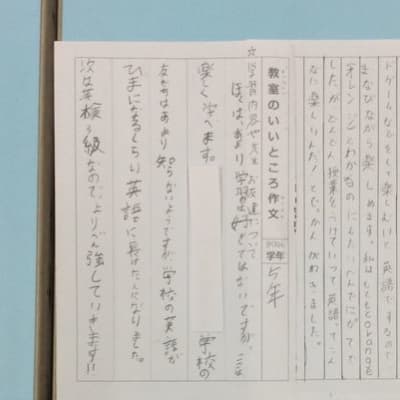 ドゲームなどをして楽しんいと英語でするので、
まなびながら楽しめます。私はもともとorangeも
「オレンジ」とわかるのにしたいへんでにがてで
したが、どんどん授業をうけていって英語。てこん
なに楽しいんだ！とてかんがわきました。
教室のいいところ作文
学年 5年
☆学習内容や先生、お友達について
ぼくは、あまり学習は好きではないですが、ここは
楽しく学べます。
学校の
友だちはあまり知らないようですが、学校の英語が
ひまになるくらい英語に長けた人になりました。
次は英検3級なので、よりべん強していきます!!